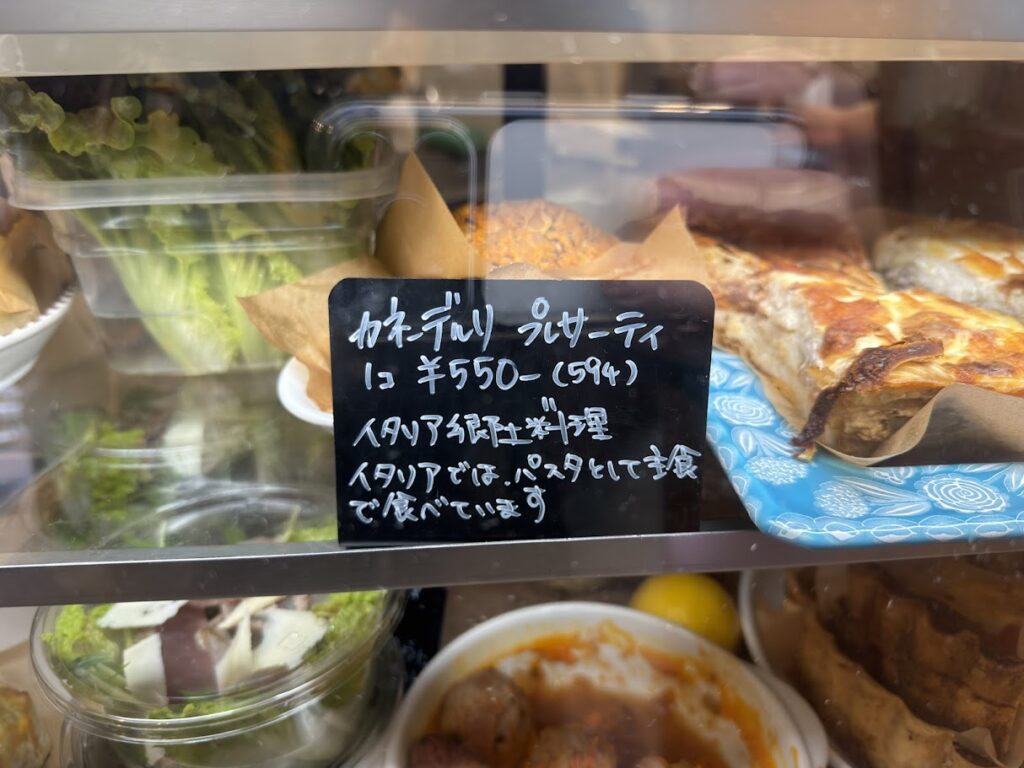 カネーデルリ プレサーティ
1コ ¥550-(594)
イタリア郷土料理
イタリアでは、パスタとして主食
で食べています